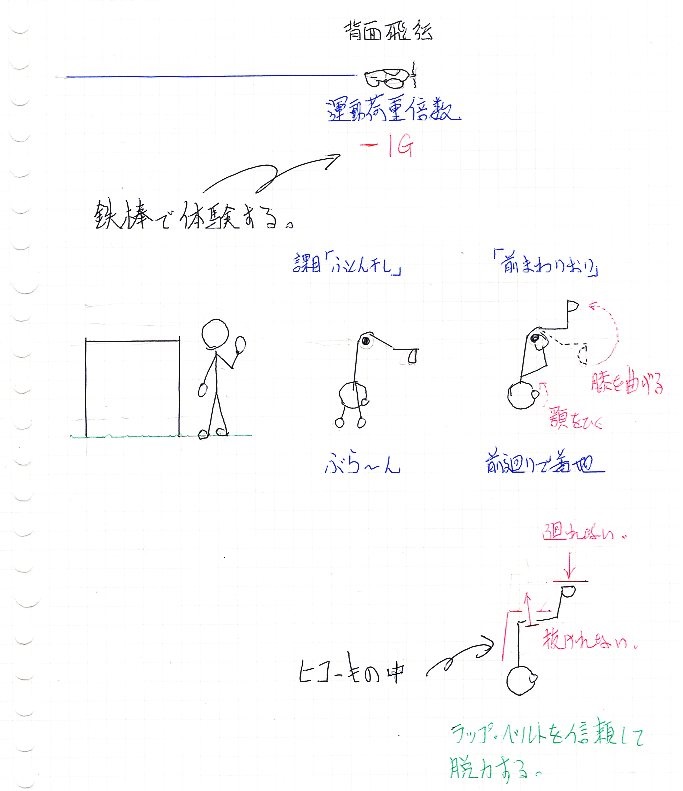 背面飛行
運動荷重倍数
-1G
鉄棒で体験する。
課目「ふとん干し」
「前まわりおり」
膝を曲げる
顎をひく
ぶら〜ん
前廻りで着地
廻れない。
抜けれない。
ヒコーキの中
ラップ・ベルトを信頼して
脱力する。